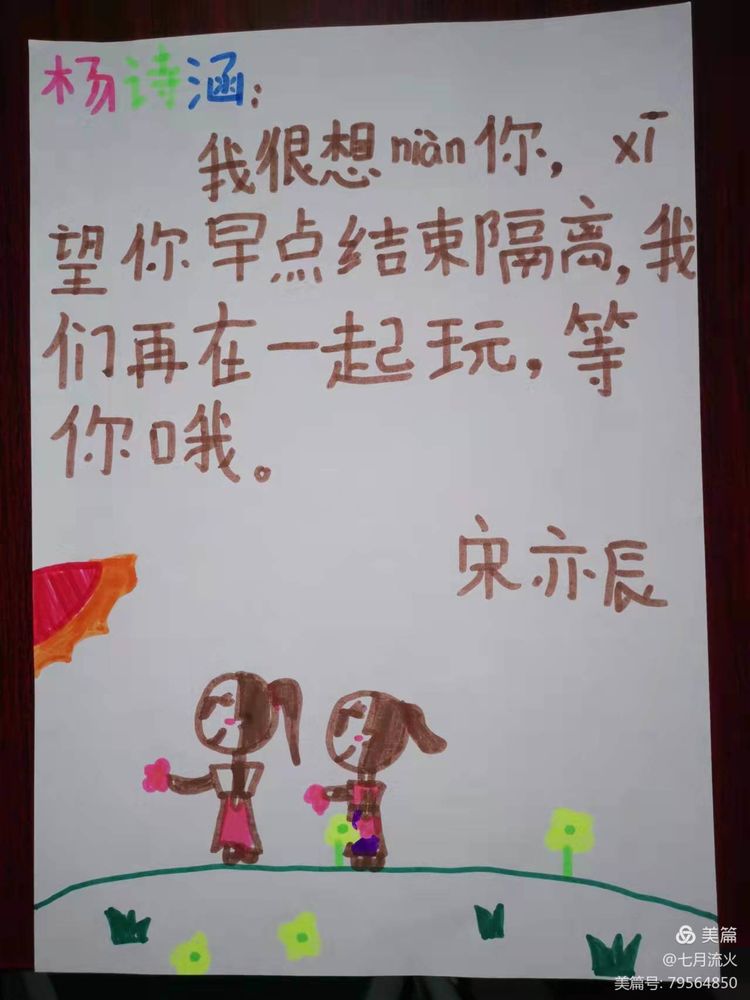 杨诗涵：
我很想niàn你，xī
望你早点结束隔离，我
们再在一起玩，等
你哦。
宋亦辰
美篇
@七月流火
美篇号: 79564850